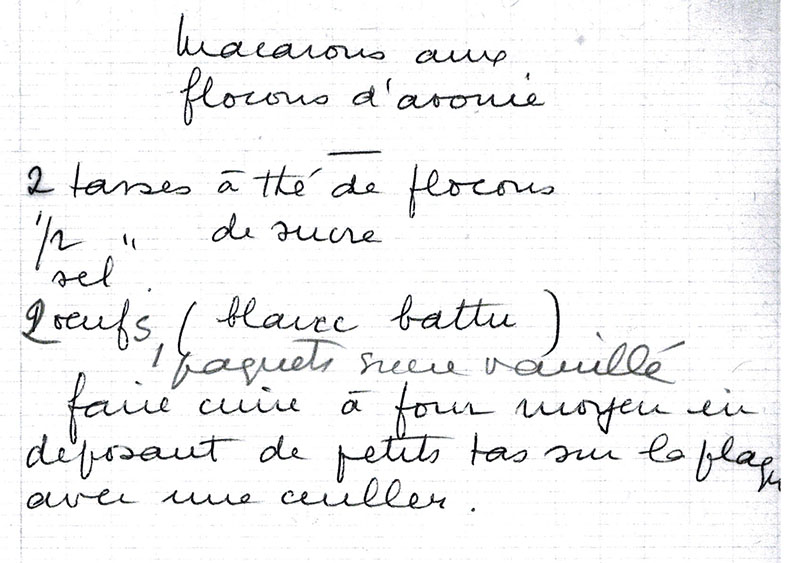 Macarons aux
flocons d'avoine
2 tasses à thé de flocons
1/2 " de sucre
sel.
2 oeufs, (blanc battu)
1 paquets sucre vanillé
faire cuire à four moyen en
deposant de petits tas sur la plaque
avec une cuiller.